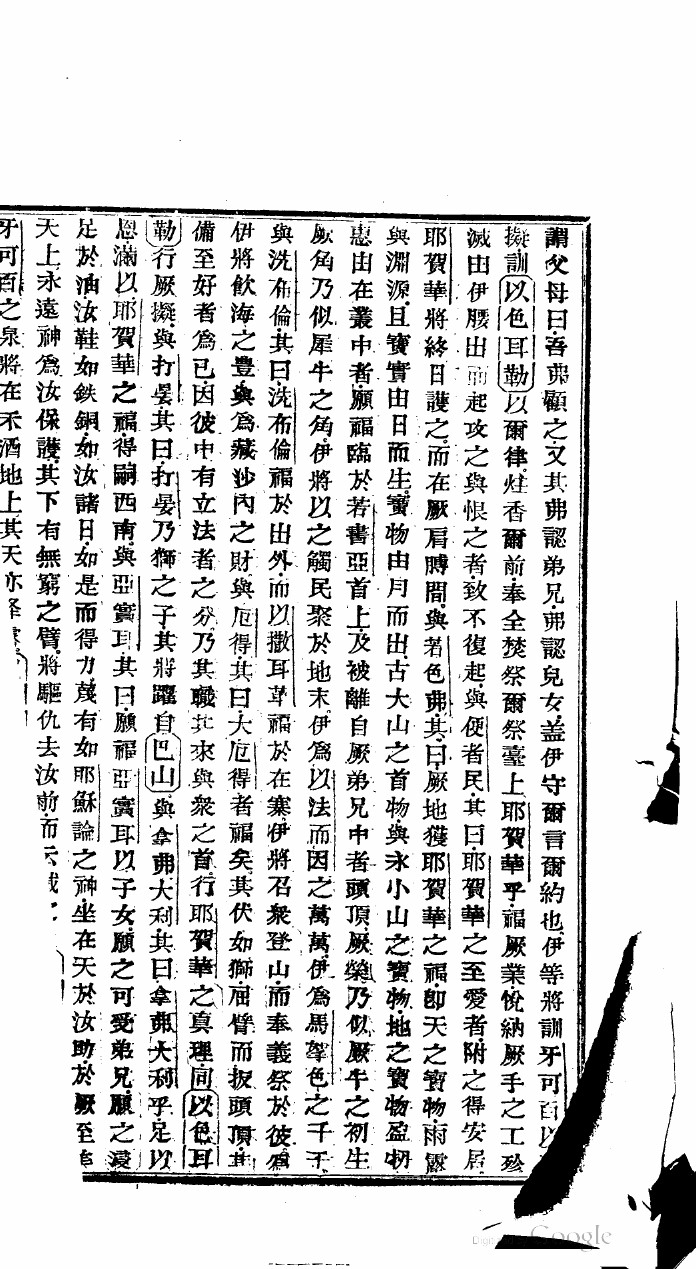 謂父母曰吾弗顧之又其弗認弟兄弗認兒女蓋伊守爾言爾約也伊等將訓牙可百以
擬訓以色耳勒以爾律炷香爾前奉全焚祭爾祭臺上耶賀華乎福厥業悅納厥手之工殄
滅由伊腰出而起攻之與恨之者致不復起與便者民其曰耶賀華之至愛者附之得安居
耶賀華將終日護之而在厥肩膊間與若色弗其曰厥地獲耶賀華之福卽天之寶物雨露
與淵源且寶實由日而生寶物由月而出古大山之首物與永小山之寶物地之寶物盈物
惠由在叢中者願福臨於若色弗首上及被離自厥弟兄中者頭頂厥榮乃似厥牛之初生
厥角乃似犀牛之角伊將以之觸民聚於地末伊爲以法而因之萬萬伊爲馬拏色之千千
與洗布倫其曰洗布倫福於出外而以撒耳革福於在寨伊將召衆登山而奉義祭於彼爲
伊將飲海之豐與爲藏沙內之財與厄得其曰大厄得者福矣其伏如獅屈臂而扳頭頂其
備至好者爲已因彼中有立法者之分乃其職其來與衆之首行耶賀華之真理同以色耳
勒行厥擬與打晏其曰打晏乃獅之子其將躍自巴山與拿弗大利其曰拿弗大利乎足以
恩滿以耶賀華之福得嗣西南與亞實耳其曰願福亞實耳以子女願之可受弟兄願之浸
足於油汝鞋如鉄銅如汝諸日如是而得力蔑有如耶穌論之神坐在天於汝助於厥至
天上永遠神爲汝保護其下有無窮之臂將驅仇去汝前而云滅
牙可百之泉將在禾酒地上其天亦
Google